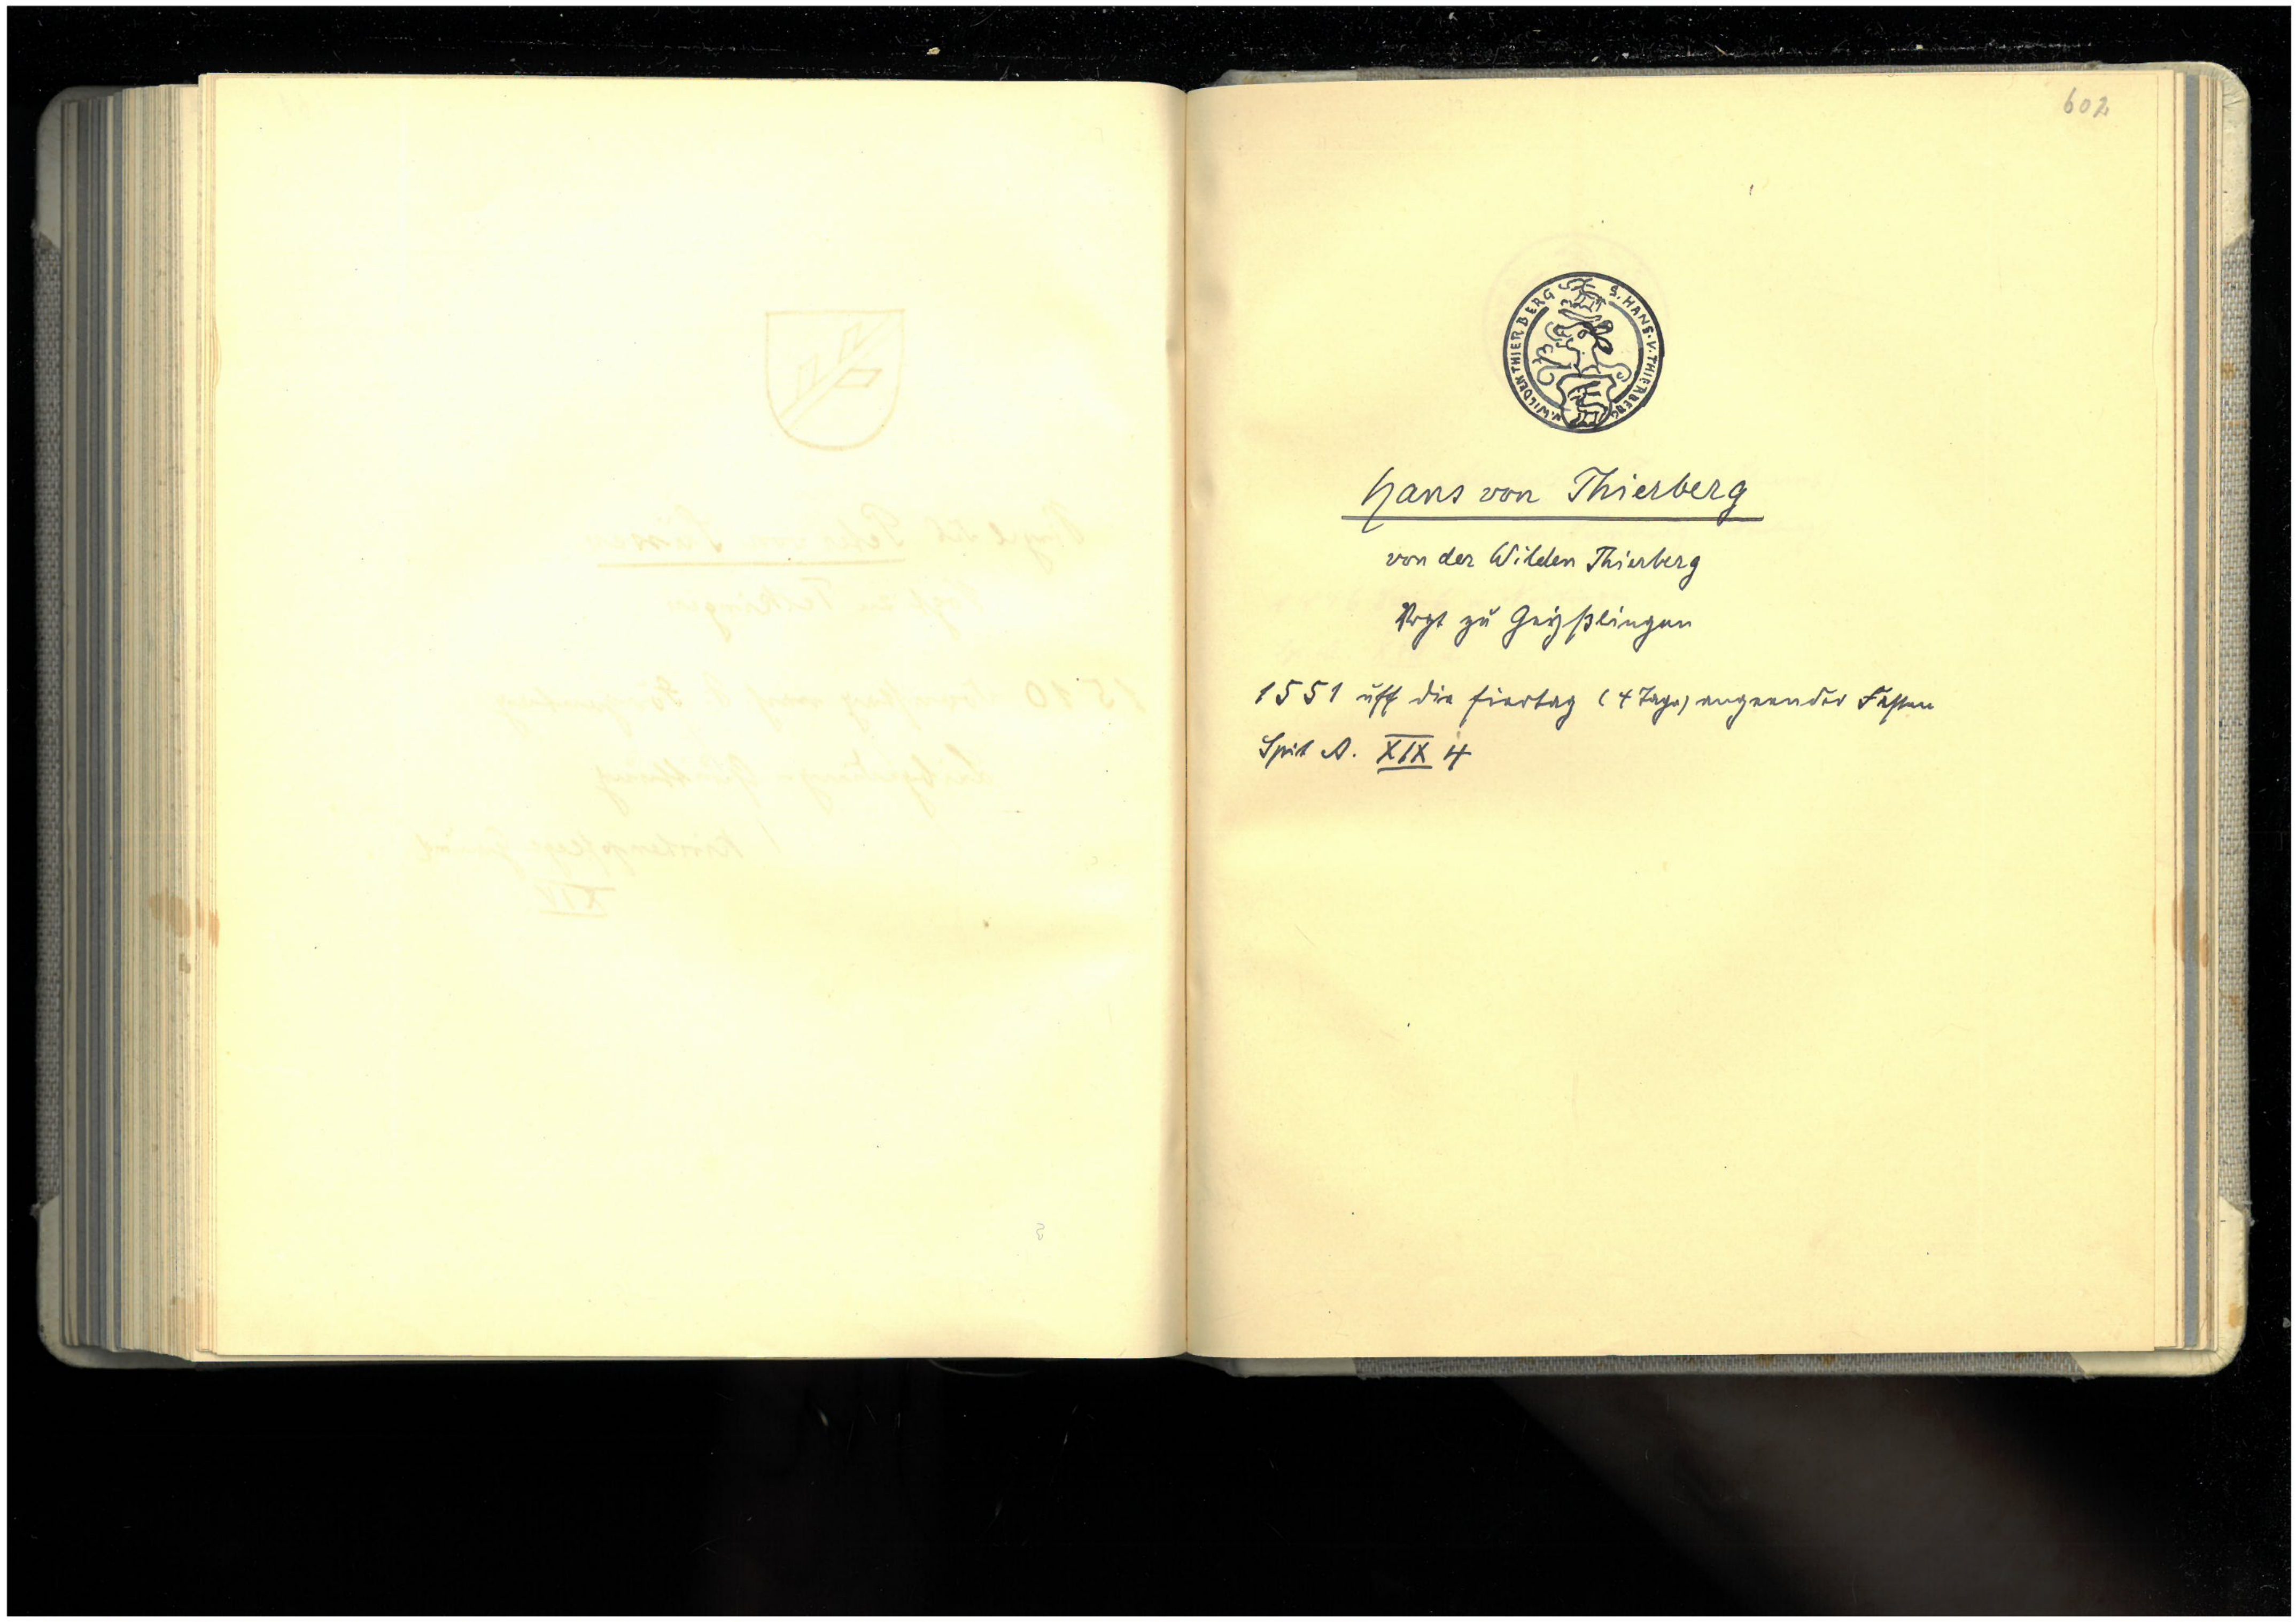 602
S. HANS. V. THIERBERG
V. WILDEN THIERBERG
Hans von Thierberg
von der Wilden Thierberg
Vogt zu Geyßlingen
1551 uff die fiertag (4 Tage) angeender Fasten
Spit A. XIX 4